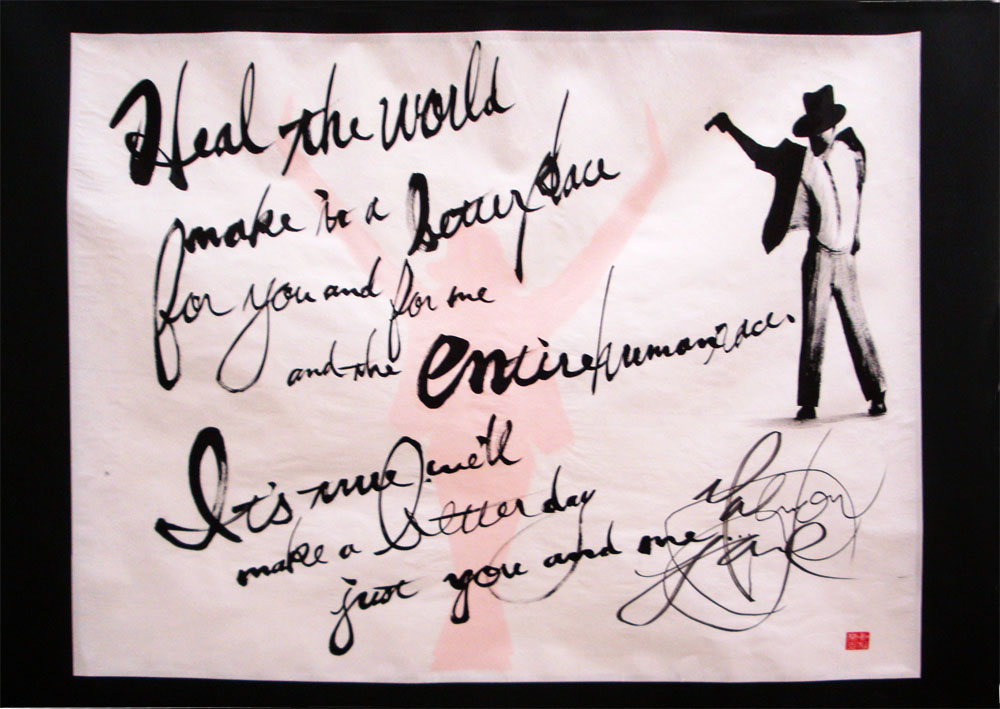 Heal the world
make it a better place
for you and for me
and the entire human race.
It's true, we'll
make a better day
just you and me...